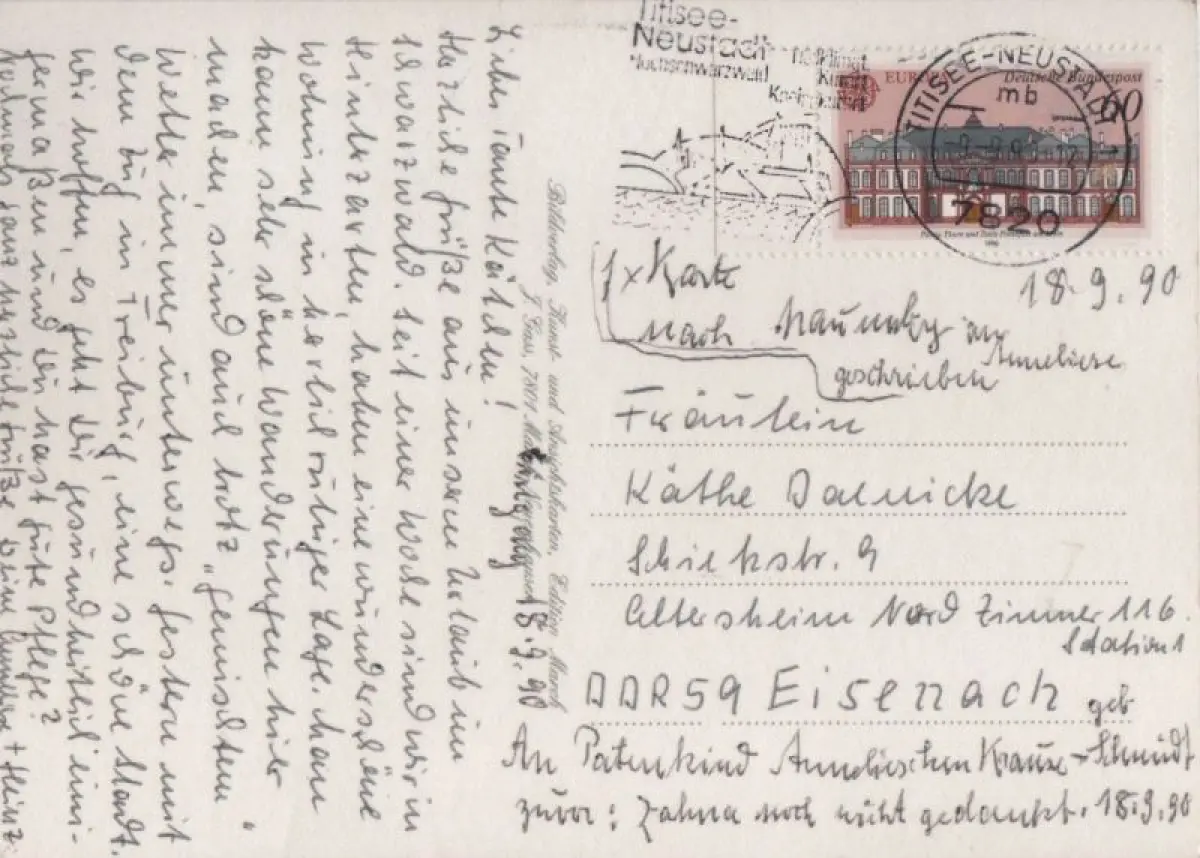 Liebe Tante Käthchen!
Herzliche Grüße aus unserem Urlaub im
Schwarzwald. Seit einer Woche sind wir in
Hinterzarten, haben eine wunderschöne
Wohnung in herrlich ruhiger Lage. Man
kann sehr schöne Wanderungen hier
machen, sind auch trotz "gemischtem"
Wetter immer unterwegs. Gestern mit
dem Zug in Freiburg, eine schöne Stadt.
Wir hoffen, es geht Dir gesundheitlich eini-
germaßen und Du hast gute Pflege?
Nochmals ganz herzliche Grüße Deine Anneliese + Heinz
Bildverlag, Kunst- und Ansichtskarten, Edition March
18.9.90
Titisee-
Neustadt
Hochschwarzwald
heilklimat.
Kurort
Kneippkurort
EUROPA
Deutsche Bundespost
60
TITISEE-NEUSTADT
mb
7820
1990
18.9.90
1x Karte
nach Naumburg an
Anneliese
geschrieben
Fräulein
Käthe Daenicke
Schickstr. 9
Altersheim Nord Zimmer 116
Station 1
DDR 59 Eisenach
geb.
An Patenkind Annelieschen Krause-Schmidt
zuvor: Zahna noch nicht gedankt. 18.9.90